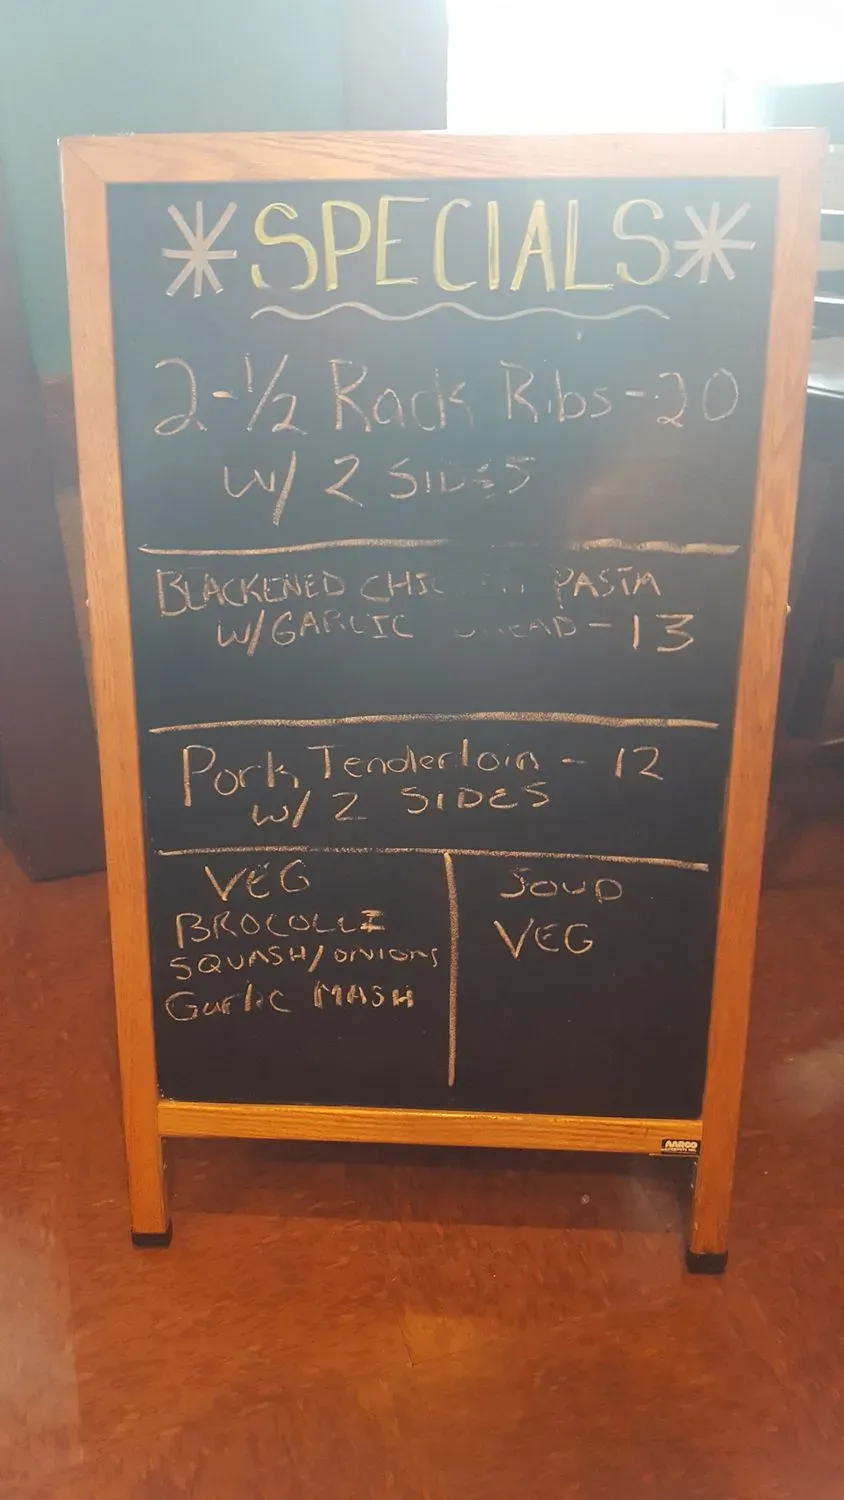 *SPECIALS*
2-1/2 Rack Ribs-20
W/ 2 SIDES
BLACKENED PASTA
W/GARLIC -13
Pork Tenderloin - 12
W/ 2 SIDES
VEG
BROCOLLI
SQUASH/ONIONS
Garlic MASH
SOUP
VEG
AARCO